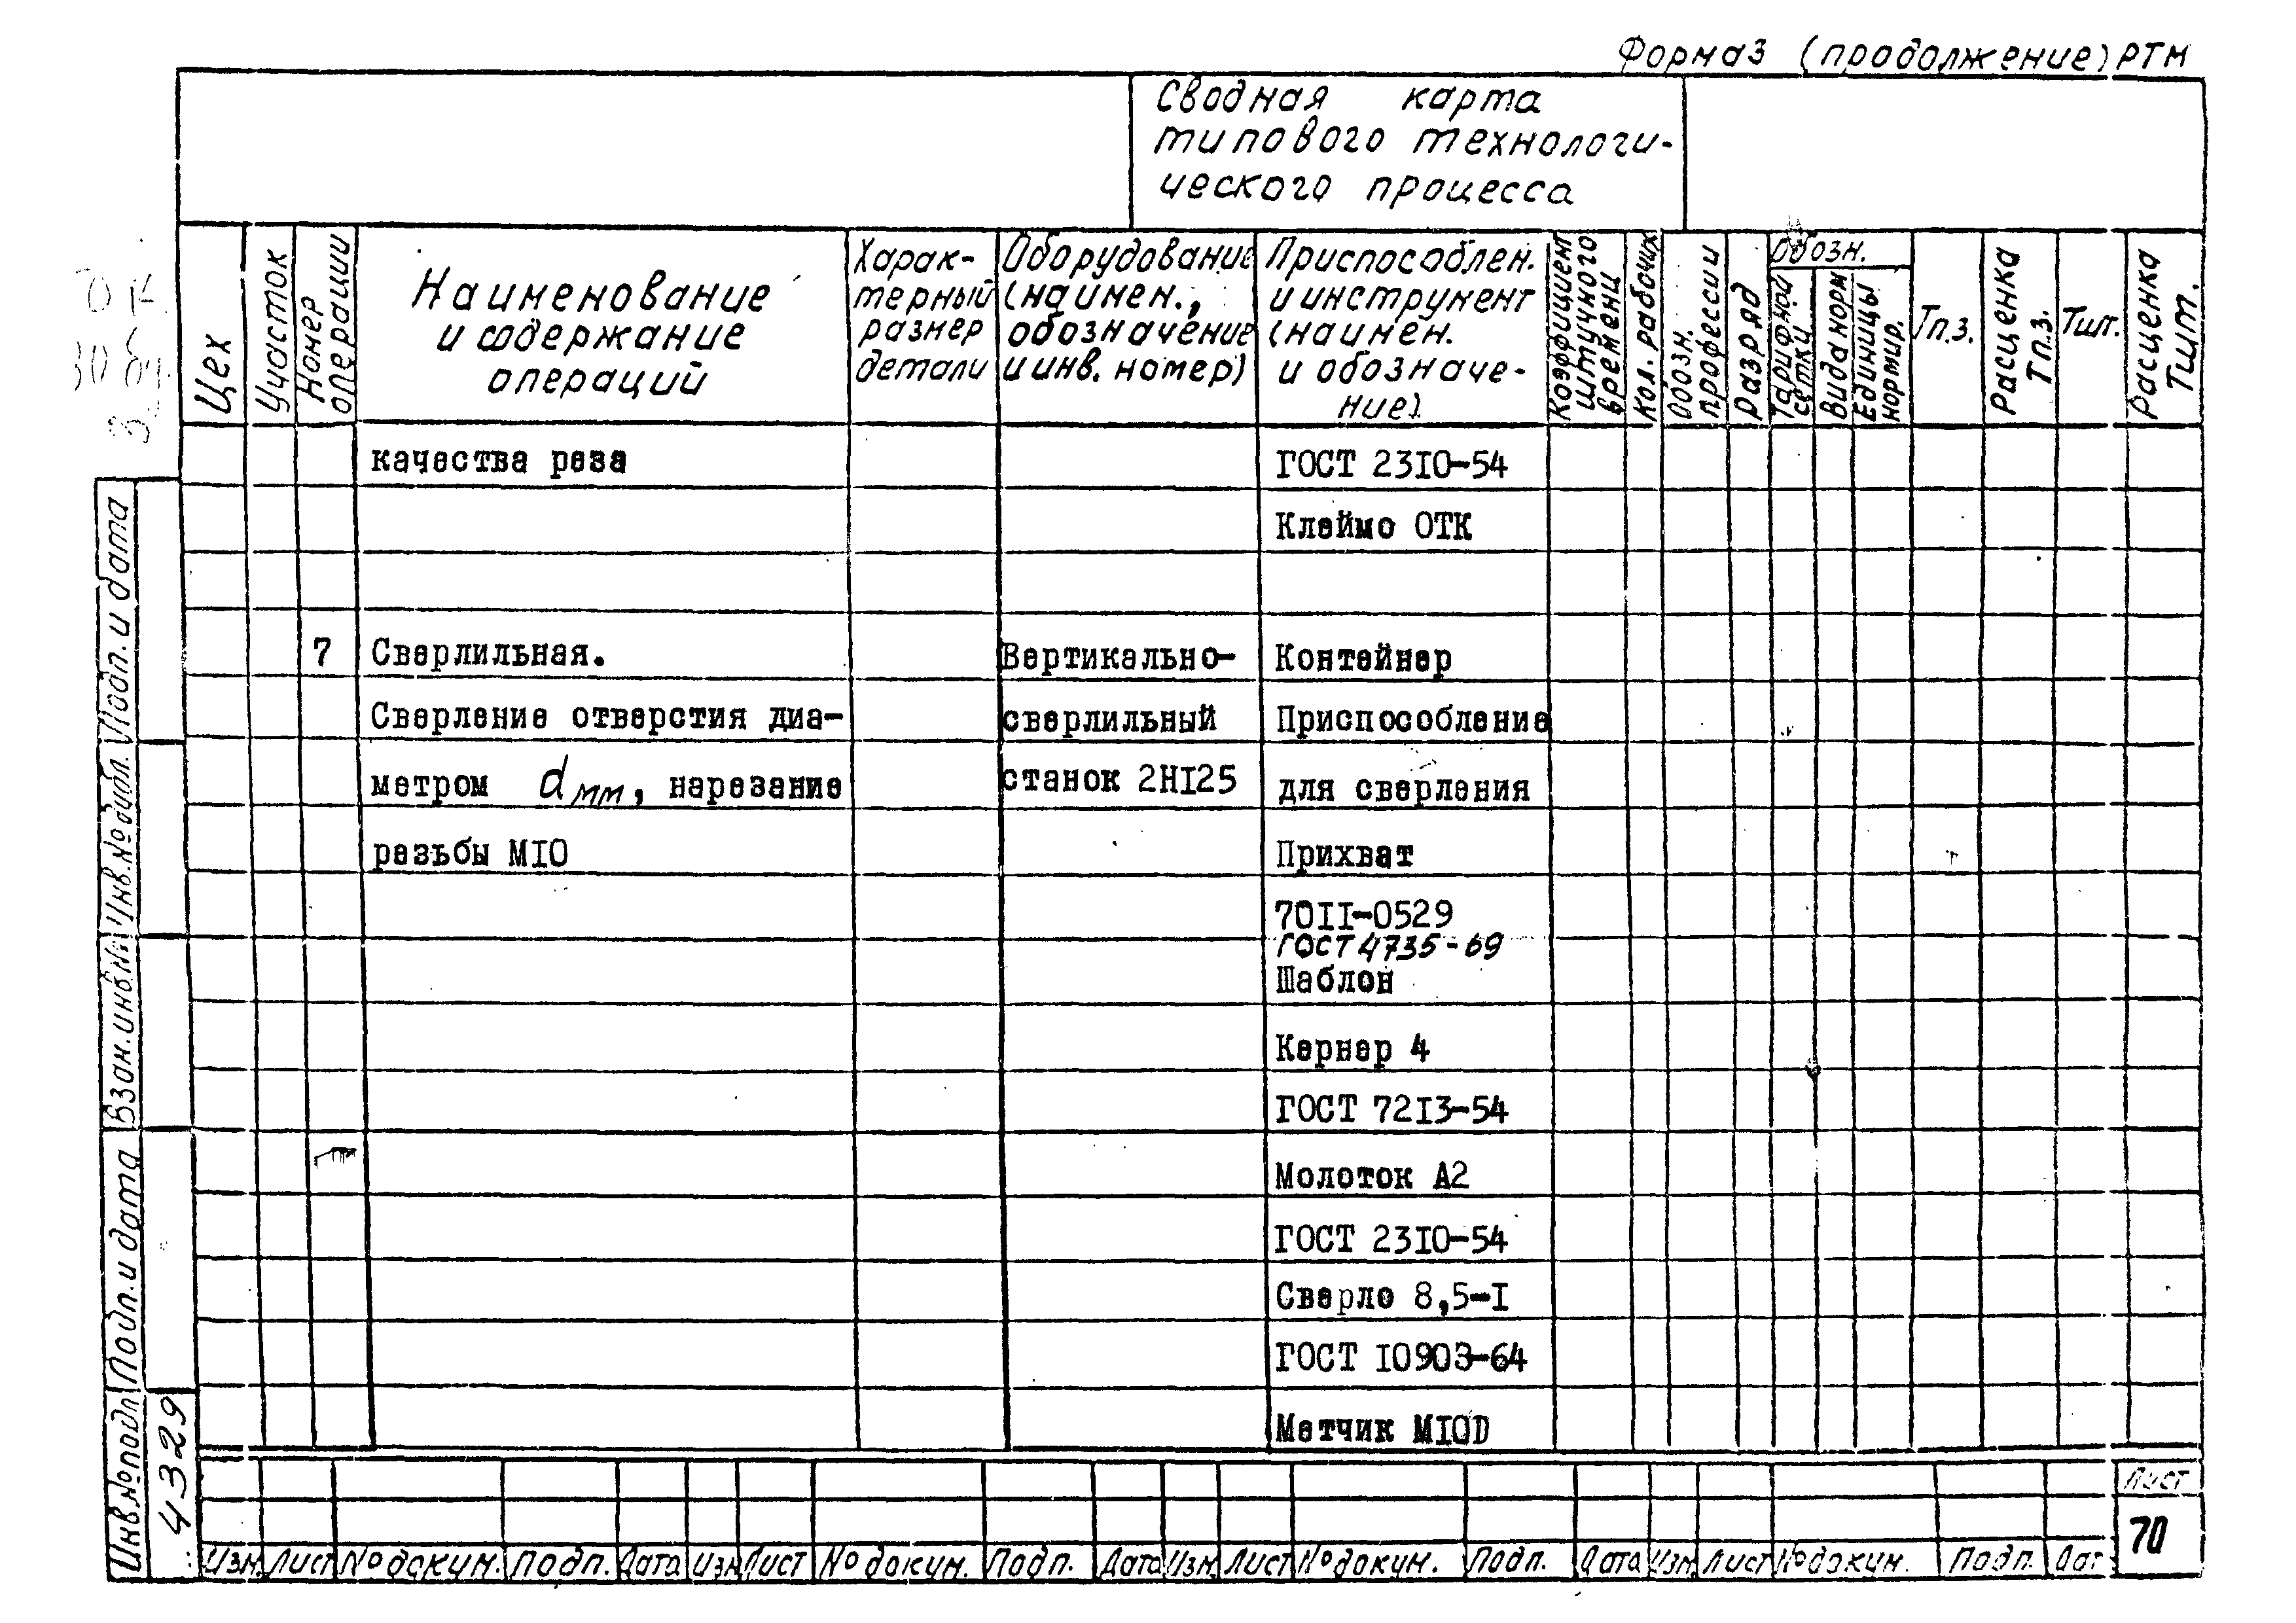 Форма3 (продолжение) РТМ
Сводная карта
типового технологи-
ческого процесса
Цех
Участок
Номер
операции
Наименование
и содержание
операций
Харак-
терный
размер
детали
Оборудование
(наимен.,
обозначение
и инв. номер)
Приспособлен.
и инструмент
(наимен.
и обозначе-
ние).
Коэффициент
штучного
времени
Кол. рабочих
Обозн.
профессии
Разряд
Обозн.
Тарифной
сетки
Вида норм
Единицы
нормир.
Тп.з.
Расценка
Тп.з.
Тшт.
Расценка
Тшт.
качества реза
ГОСТ 2310-54
Клеймо ОТК
7 Сверлильная. Вертикально- Контейнер
Сверление отверстия диа- сверлильный Приспособление
метром d мм, нарезание станок 2Н125 для сверления
резьбы М10 Прихват
7011-0529
ГОСТ 4735-69
Шаблон
Кернер 4
ГОСТ 7213-54
Молоток А2
ГОСТ 2310-54
Сверло 8,5-I
ГОСТ 10903-64
Метчик М10D
Подп. и дата
Инв.№дубл.
Взам.инв№
Подп. и дата
Инв.№подл
4329
Лист
70
Изм. Лист №докум. Подп. Дата Изм Лист №докум. Подп. Дата Изм. Лист №докум. Подп. Дата Изм. Лист №докум. Подп. Дат